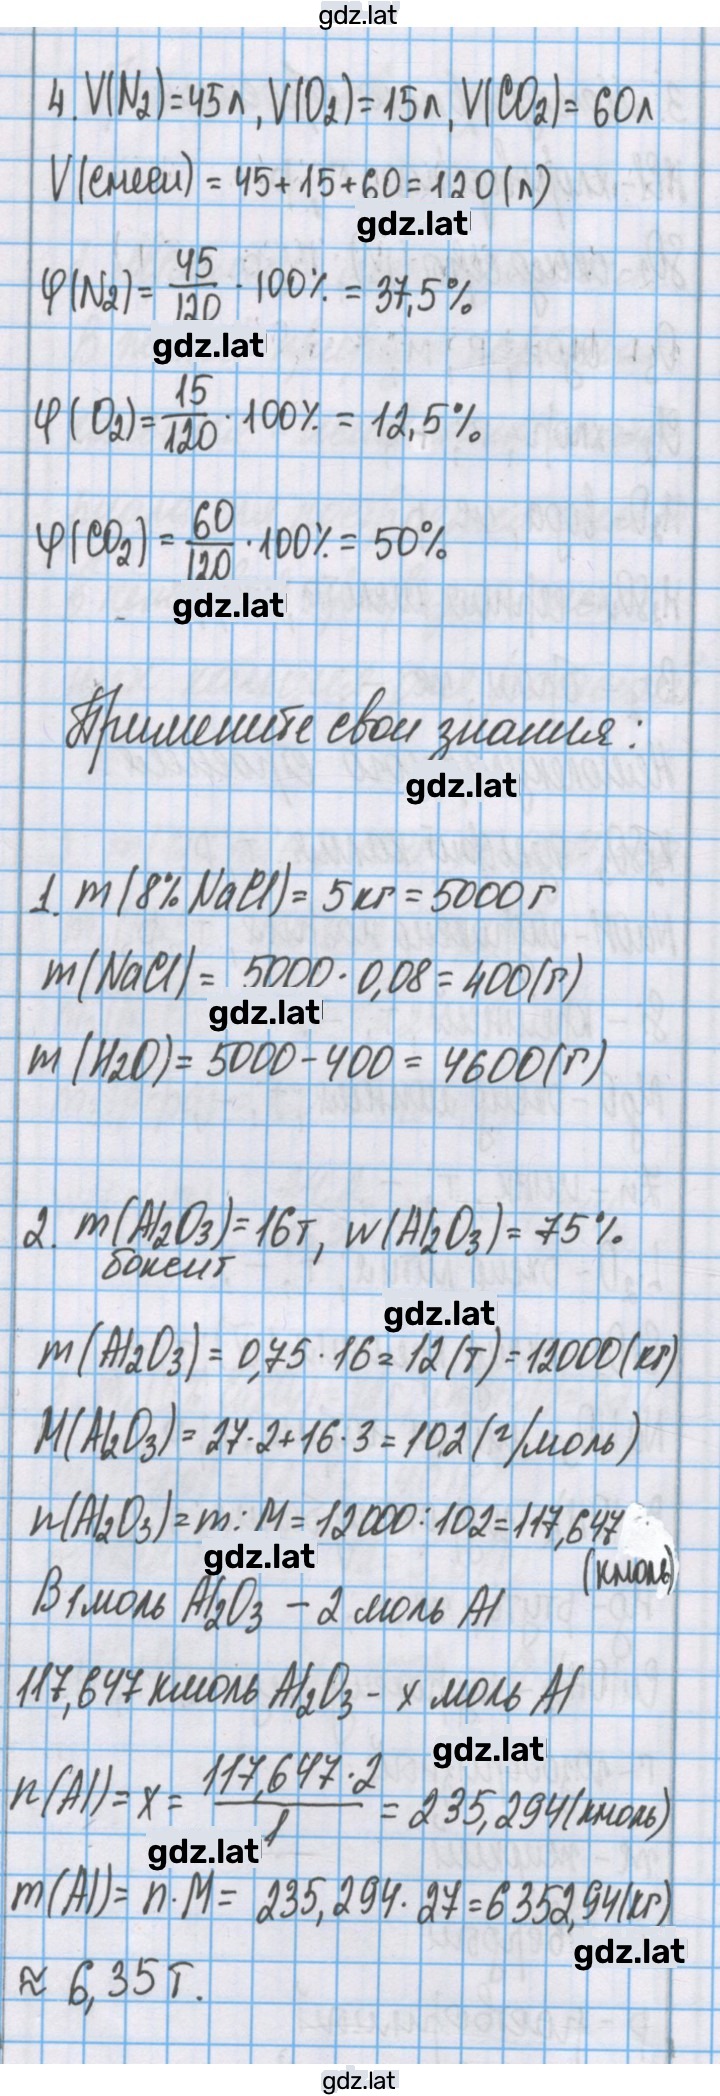 gdz.lat
4. V(N₂)=45л, V(O₂)=15л, V(CO₂)=60л
V(смеси)=45+15+60=120(л)
gdz.lat
φ(N₂)=45/120·100%=37,5%
gdz.lat
φ(O₂)=15/120·100%=12,5%
φ(CO₂)=60/120·100%=50%
gdz.lat
Примените свои знания:
gdz.lat
1. m(8% NaCl)=5кг=5000г
m(NaCl)=5000·0,08=400(г)
gdz.lat
m(H₂O)=5000-400=4600(г)
2. m(Al₂O₃)=16т, w(Al₂O₃)=75%
боксит
gdz.lat
m(Al₂O₃)=0,75·16=12(т)=12000(кг)
M(Al₂O₃)=27·2+16·3=102(г/моль)
n(Al₂O₃)=m:M=12000:102=117,647
(кмоль)
gdz.lat
В 1 моль Al₂O₃ - 2 моль Al
117,647 кмоль Al₂O₃ - x моль Al
gdz.lat
n(Al)=x=117,647·2/1=235,294(кмоль)
gdz.lat
m(Al)=n·M=235,294·27=6352,94(кг)
gdz.lat
≈ 6,35т.
gdz.lat